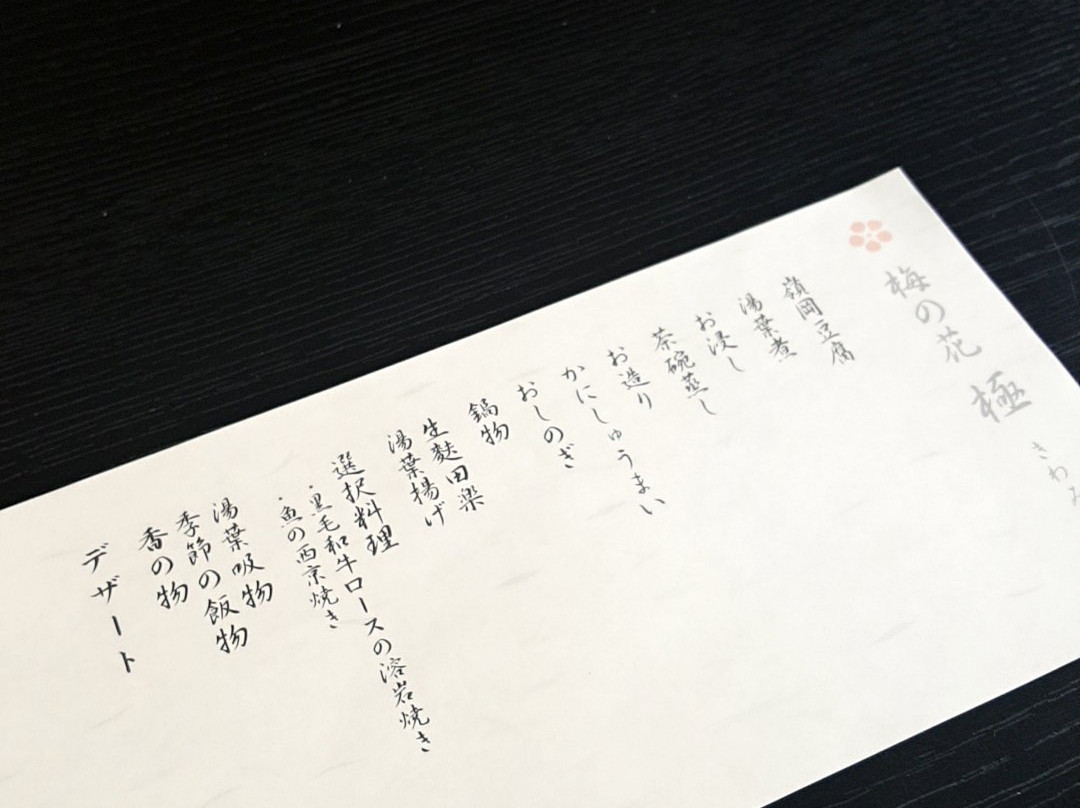 梅の花 極
きわみ
嶺岡豆腐
湯葉煮
お浸し
茶碗蒸し
お造り
かにしゅうまい
おしのぎ
鍋物
生麩田楽
湯葉揚げ
選択料理
・黒毛和牛ロースの溶岩焼き
・魚の西京焼き
湯葉吸物
季節の飯物
香の物
デザート